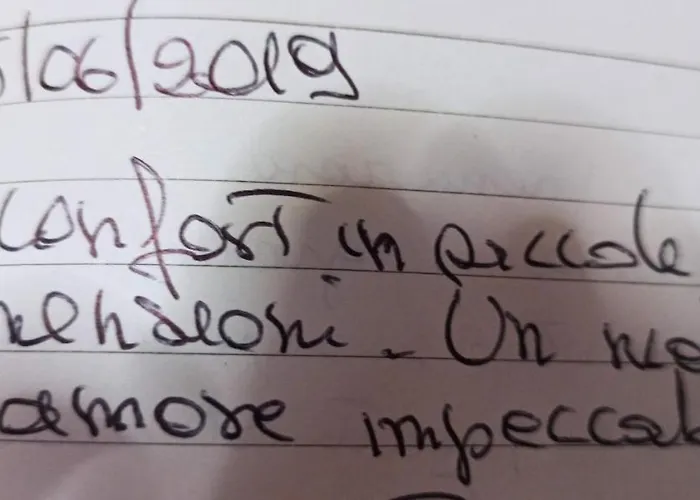 /06/2019
confort in piccole
mensioni. Un
amore impeccab